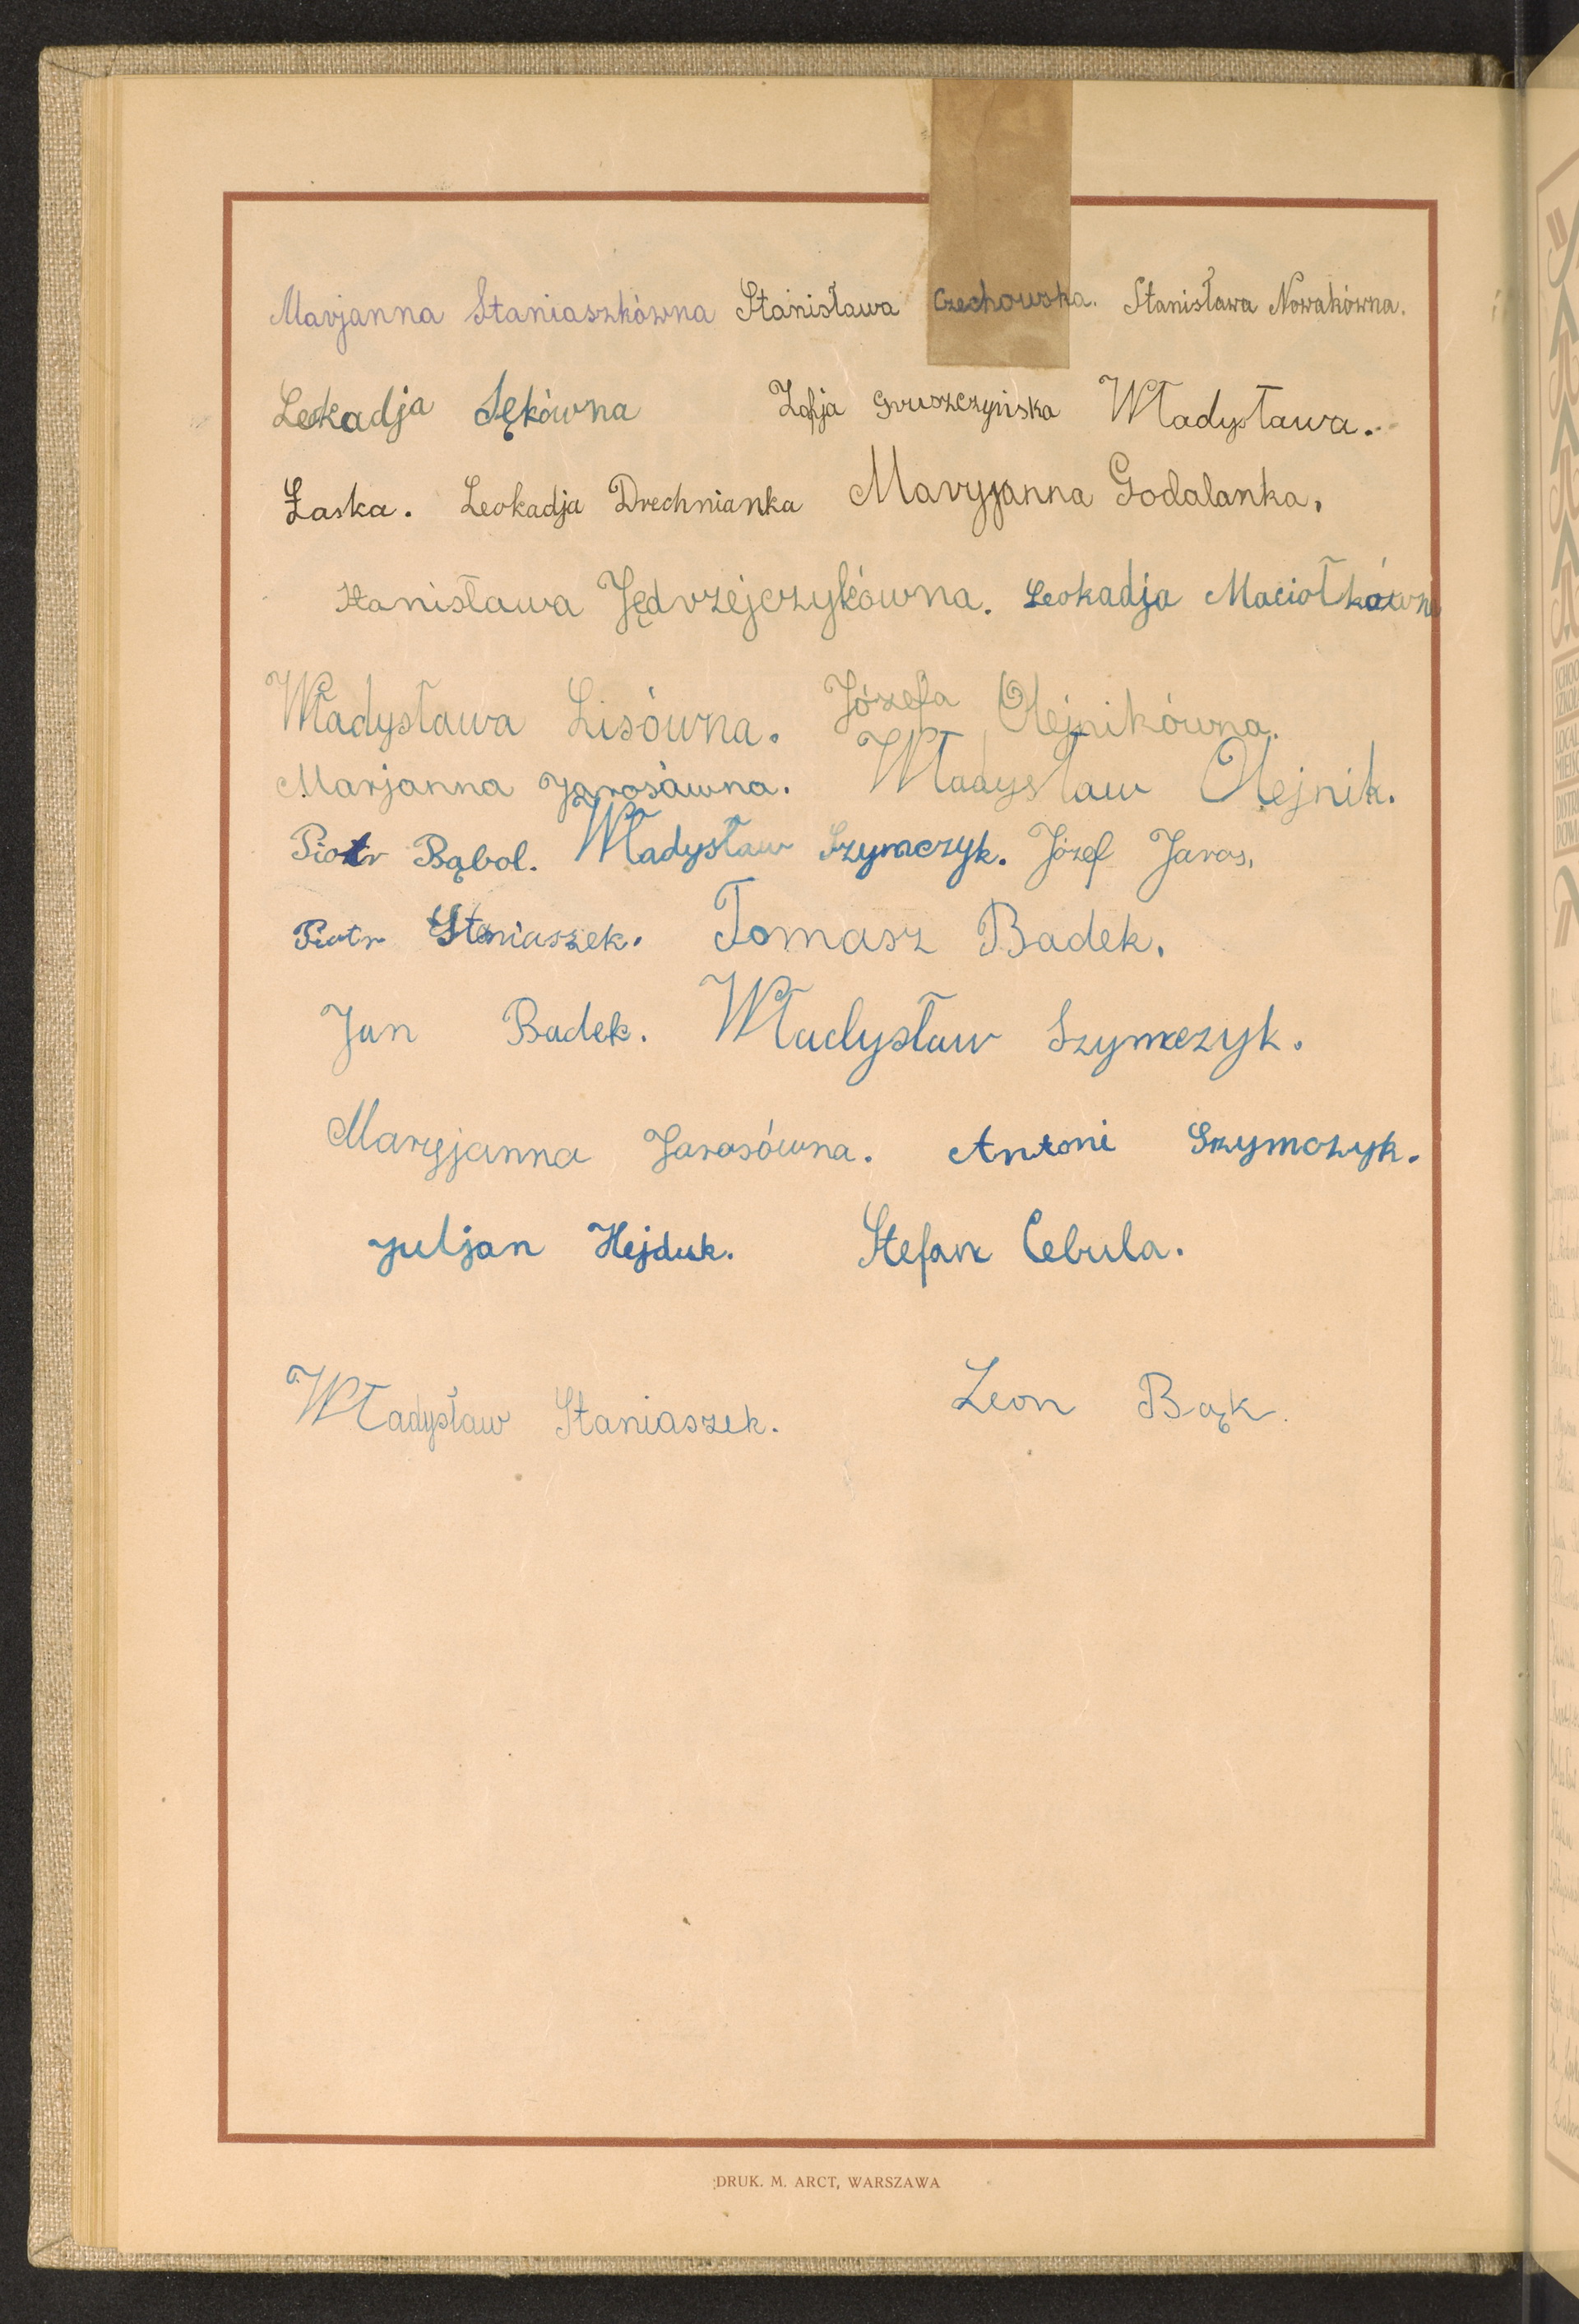 Marjanna Staniaszkówna Stanisława Czechowska. Stanisława Nowakówna.
Leokadja Sękówna Zofja Gruszczyńska Władysława.
Łaska. Leokadja Drechnianka Maryjanna Godalanka.
Stanisława Jędrzejczykówna. Leokadja Maciołkówna
Władysława Lisówna. Józefa Olejnikówna.
Marjanna Jarosówna. Władysław Olejnik.
Piotr Bąbol. Władysław Szymczyk. Józef Jaros.
Piotr Staniaszek. Tomasz Badek.
Jan Badek. Władysław Szymczyk.
Maryjanna Jarosówna. Antoni Szymczyk.
Juljan Hejduk. Stefan Cebula.
Władysław Staniaszek. Leon Bąk.
DRUK. M. ARCT, WARSZAWA